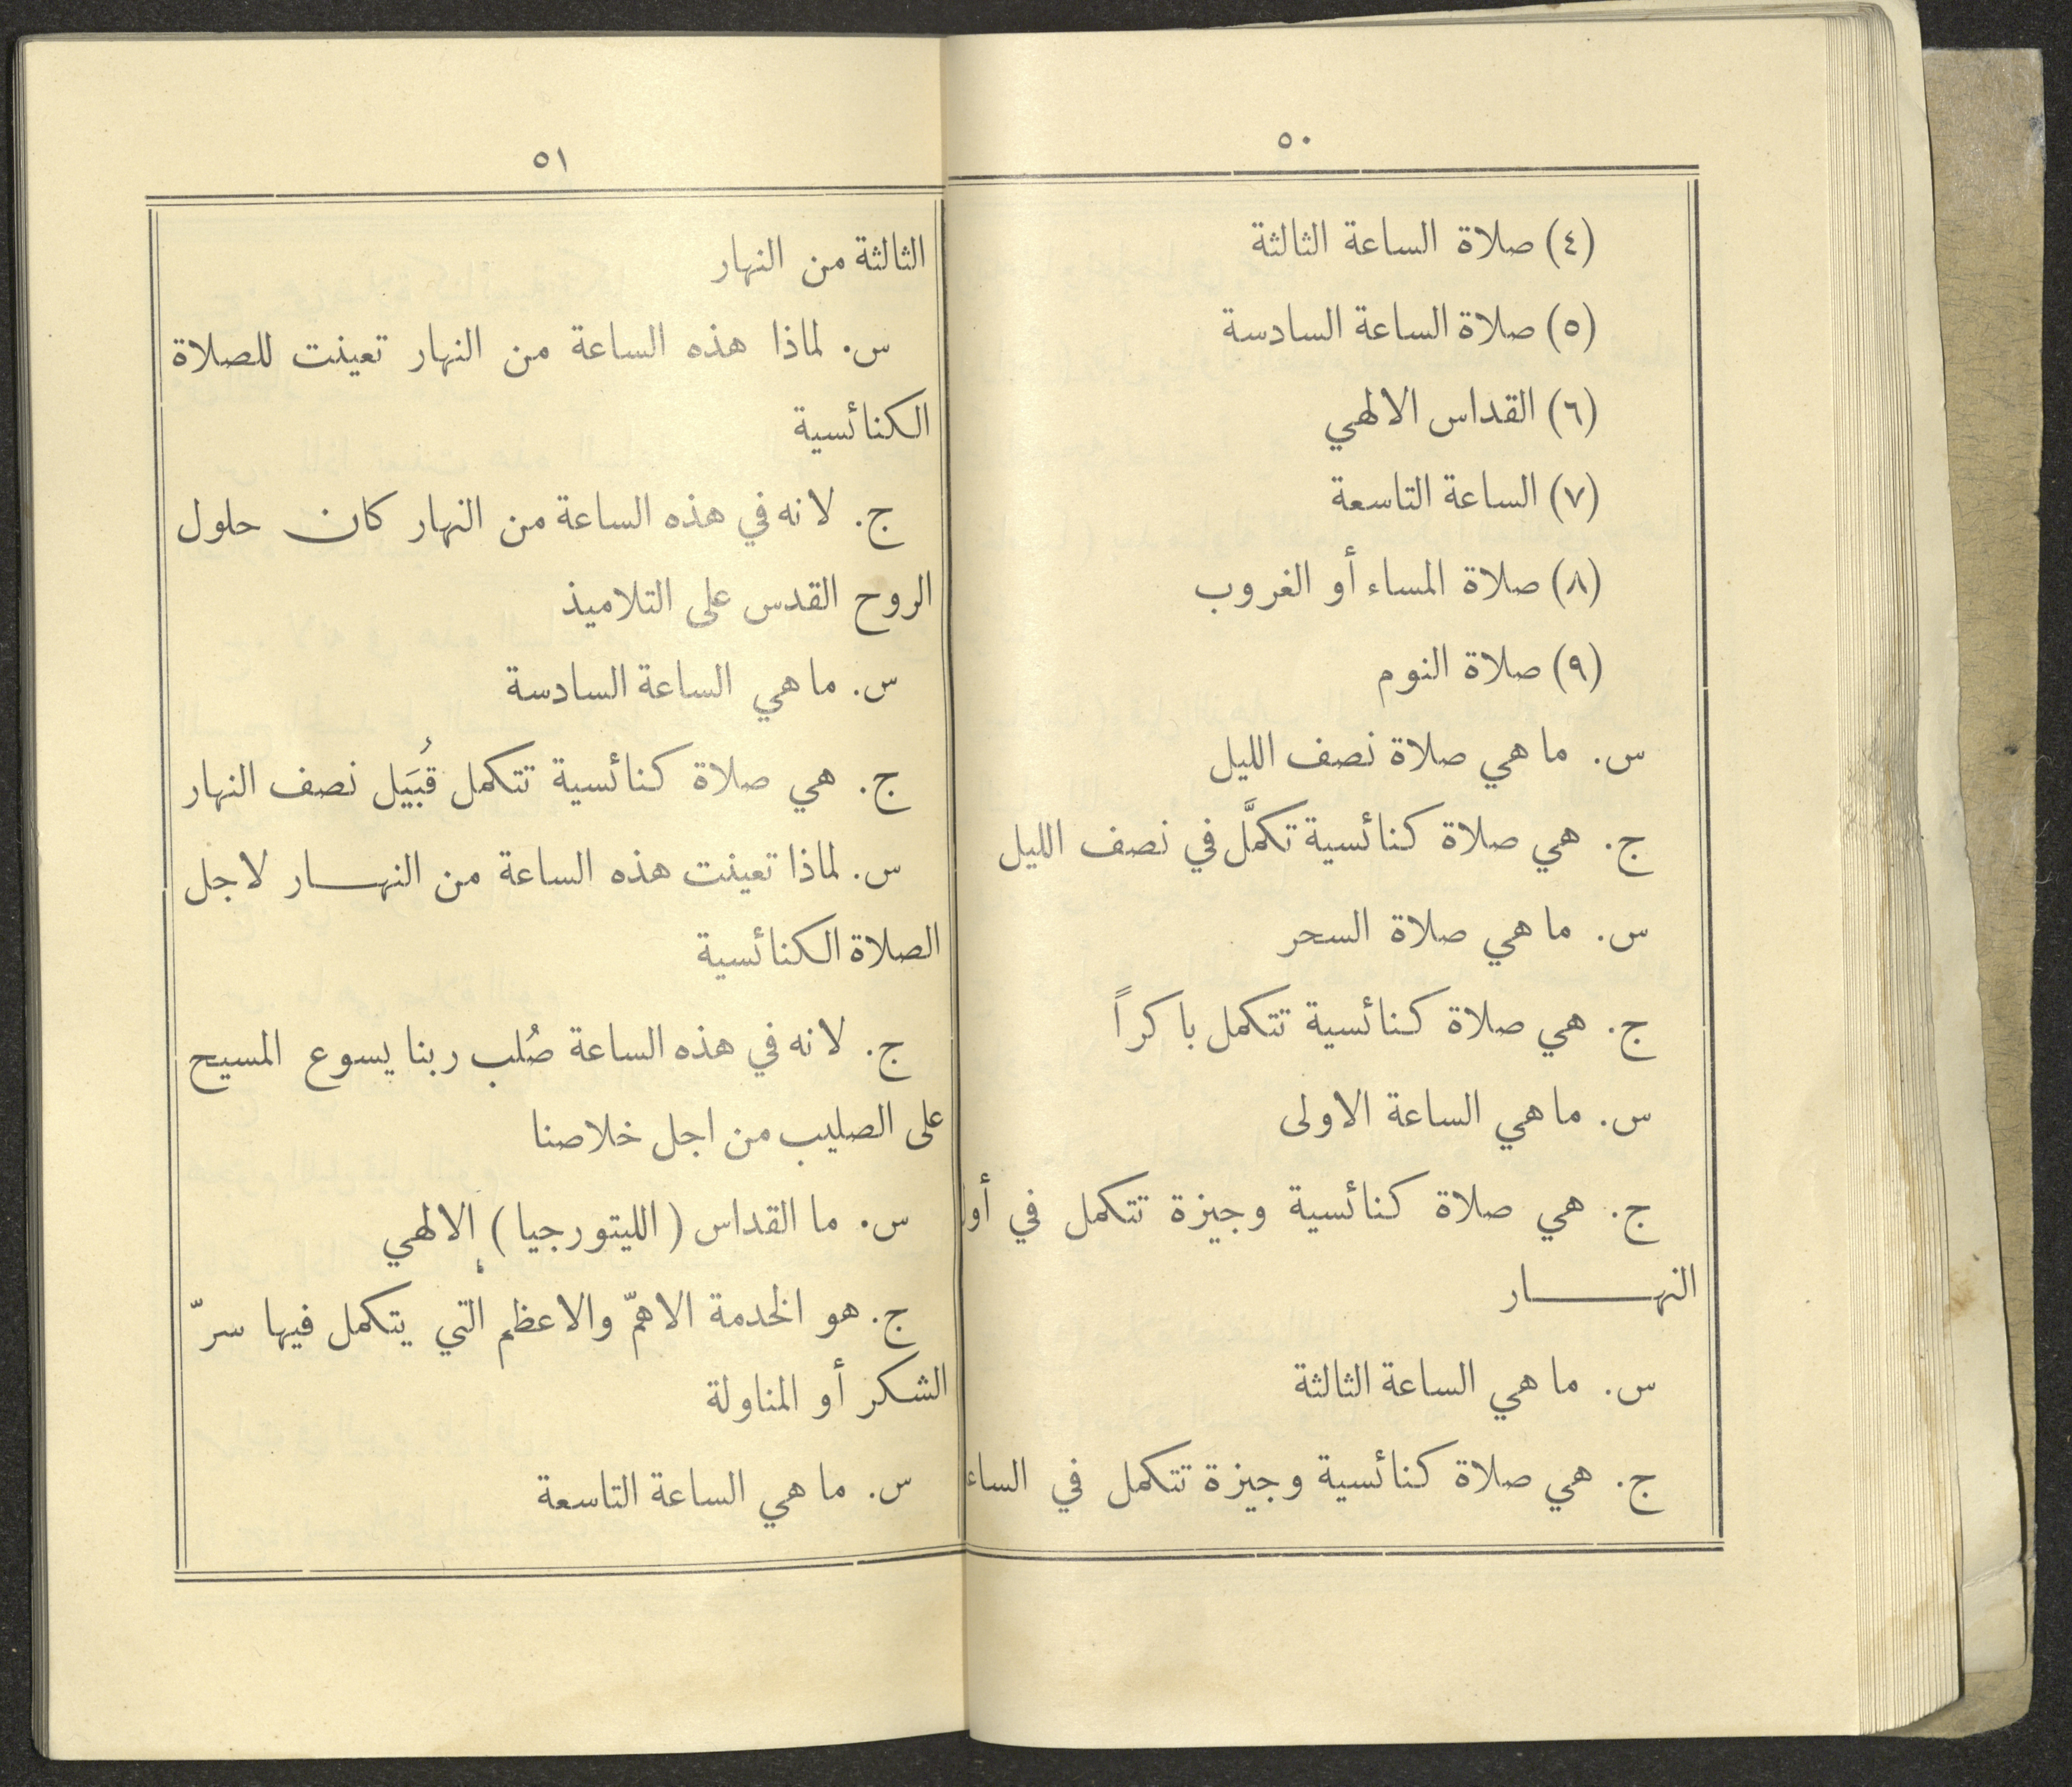 ٥٠
(٤) صلاة الساعة الثالثة
(٥) صلاة الساعة السادسة
(٦) القداس الالهي
(٧) الساعة التاسعة
(٨) صلاة المساء أو الغروب
(٩) صلاة النوم
س. ما هي صلاة نصف الليل
ج. هي صلاة كنائسية تكمَّل في نصف الليل
س. ما هي صلاة السحر
ج. هي صلاة كنائسية تتكمل باكراً
س. ما هي الساعة الاولى
ج. هي صلاة كنائسية وجيزة تتكمل في أول
النهـــــار
س. ما هي الساعة الثالثة
ج. هي صلاة كنائسية وجيزة تتكمل في الساعة
٥١
الثالثة من النهار
س. لماذا هذه الساعة من النهار تعينت للصلاة
الكنائسية
ج. لانه في هذه الساعة من النهار كان حلول
الروح القدس على التلاميذ
س. ما هي الساعة السادسة
ج. هي صلاة كنائسية تتكمل قُبَيَل نصف النهار
س. لماذا تعينت هذه الساعة من النهـــار لاجل
الصلاة الكنائسية
ج. لانه في هذه الساعة صُلب ربنا يسوع المسيح
على الصليب من اجل خلاصنا
س. ما القداس (الليتورجيا) الالهي
ج. هو الخدمة الاهمّ والاعظم التي يتكمل فيها سرّ
الشكر أو المناولة
س. ما هي الساعة التاسعة